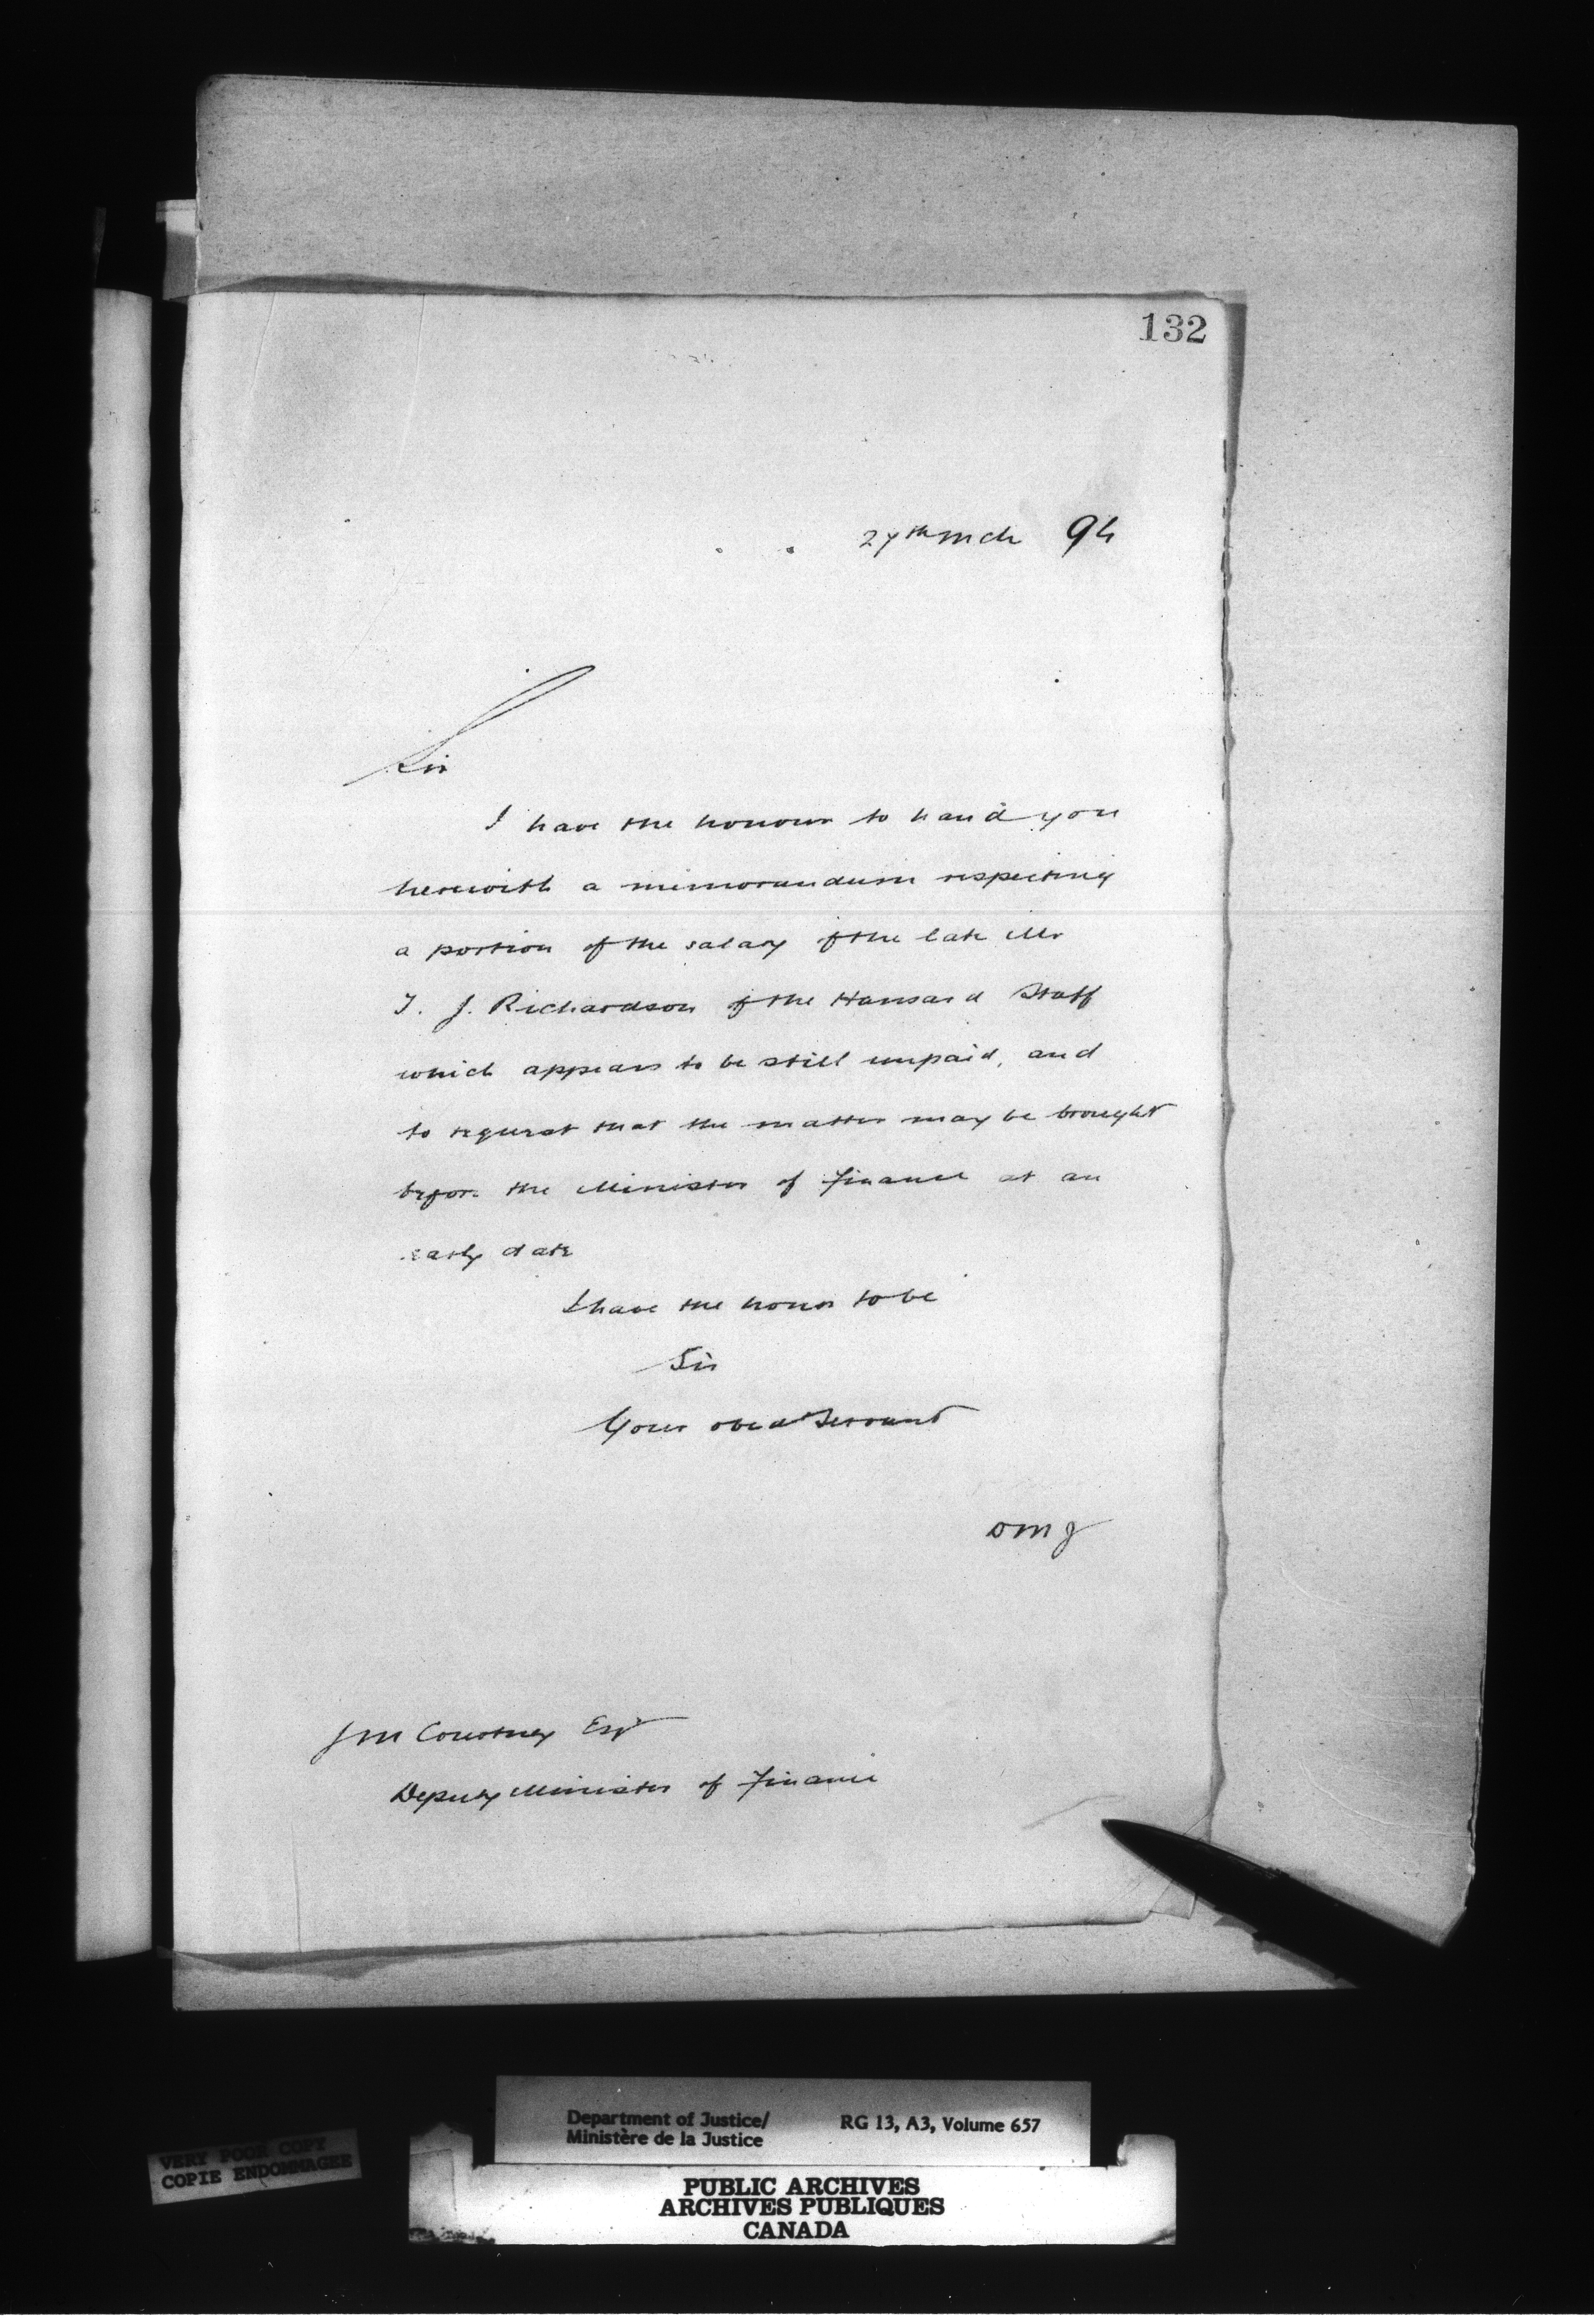 132
27th Mch 94
Sir
I have the honour to hand you
herewith a memorandum respecting
a portion of the salary of the late Mr
T. J. Richardson of the Hansard Staff
which appears to be still unpaid, and
to request that the matter may be brought
before the Minister of Finance at an
early date
I have the honor to be
Sir
Your obed Servant
DMJ
J M Courtney Esqr
Deputy Minister of Finance
Department of Justice/ RG 13, A3, Volume 657
Ministère de la Justice
VERY POOR COPY
COPIE ENDOMMAGEE
PUBLIC ARCHIVES
ARCHIVES PUBLIQUES
CANADA